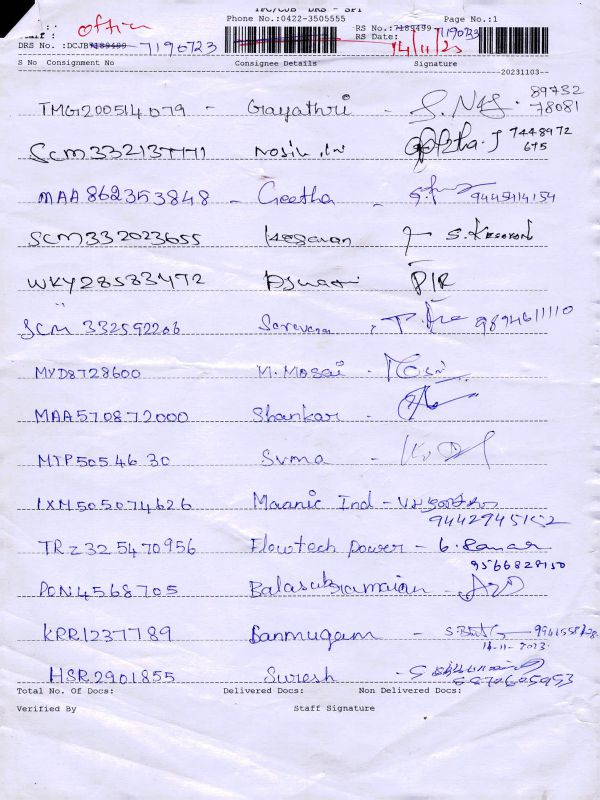 TPC/CJB DRS - SPT
office
Phone No.:0422-3505555 Page No.:1
Staff :
RS No.:7189499 7190723
DRS No. :DCJB7189499 7190723
RS Date: 14/11/23
S No Consignment No Consignee Details Signature
20231103--
TMG1200514079 - Gayathri - 89732
78081
SCM332137171 7448972
675
MAA862353848 - Geetha - 9445414154
SCM332023655 Kesavan S. Kesavan
WKY28583472 P/R
SCM 332592206 Saravana 9894611110
MYD8728600 M. Masai -
MAA570872000 Shankar -
MTP5054630 Suma -
IXM505074626 Maanic Ind -
9442945152
TRZ325470956 Flowtech power -
9566828150
PON4568705 Balasubramaian -
KRR1237789 Banmugam -
14-11-2023
HSR2901855 Suresh -
Total No. Of Docs: Delivered Docs: Non Delivered Docs:
Verified By Staff Signature